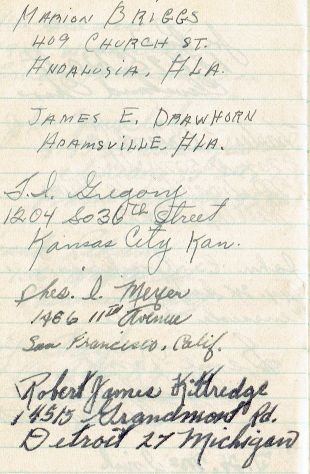 MARION BRIGGS
409 CHURCH ST.
ANDALUSIA, ALA.
JAMES E. DRAWHORN
ADAMSVILLE, ALA.
Gregory
1204 So 36TH Street
Kansas City Kan.
Meyer
1466 11TH Avenue
San Francisco, Calif.
Robert James Kittredge
14515 Grandmont Rd.
Detroit 27 Michigan